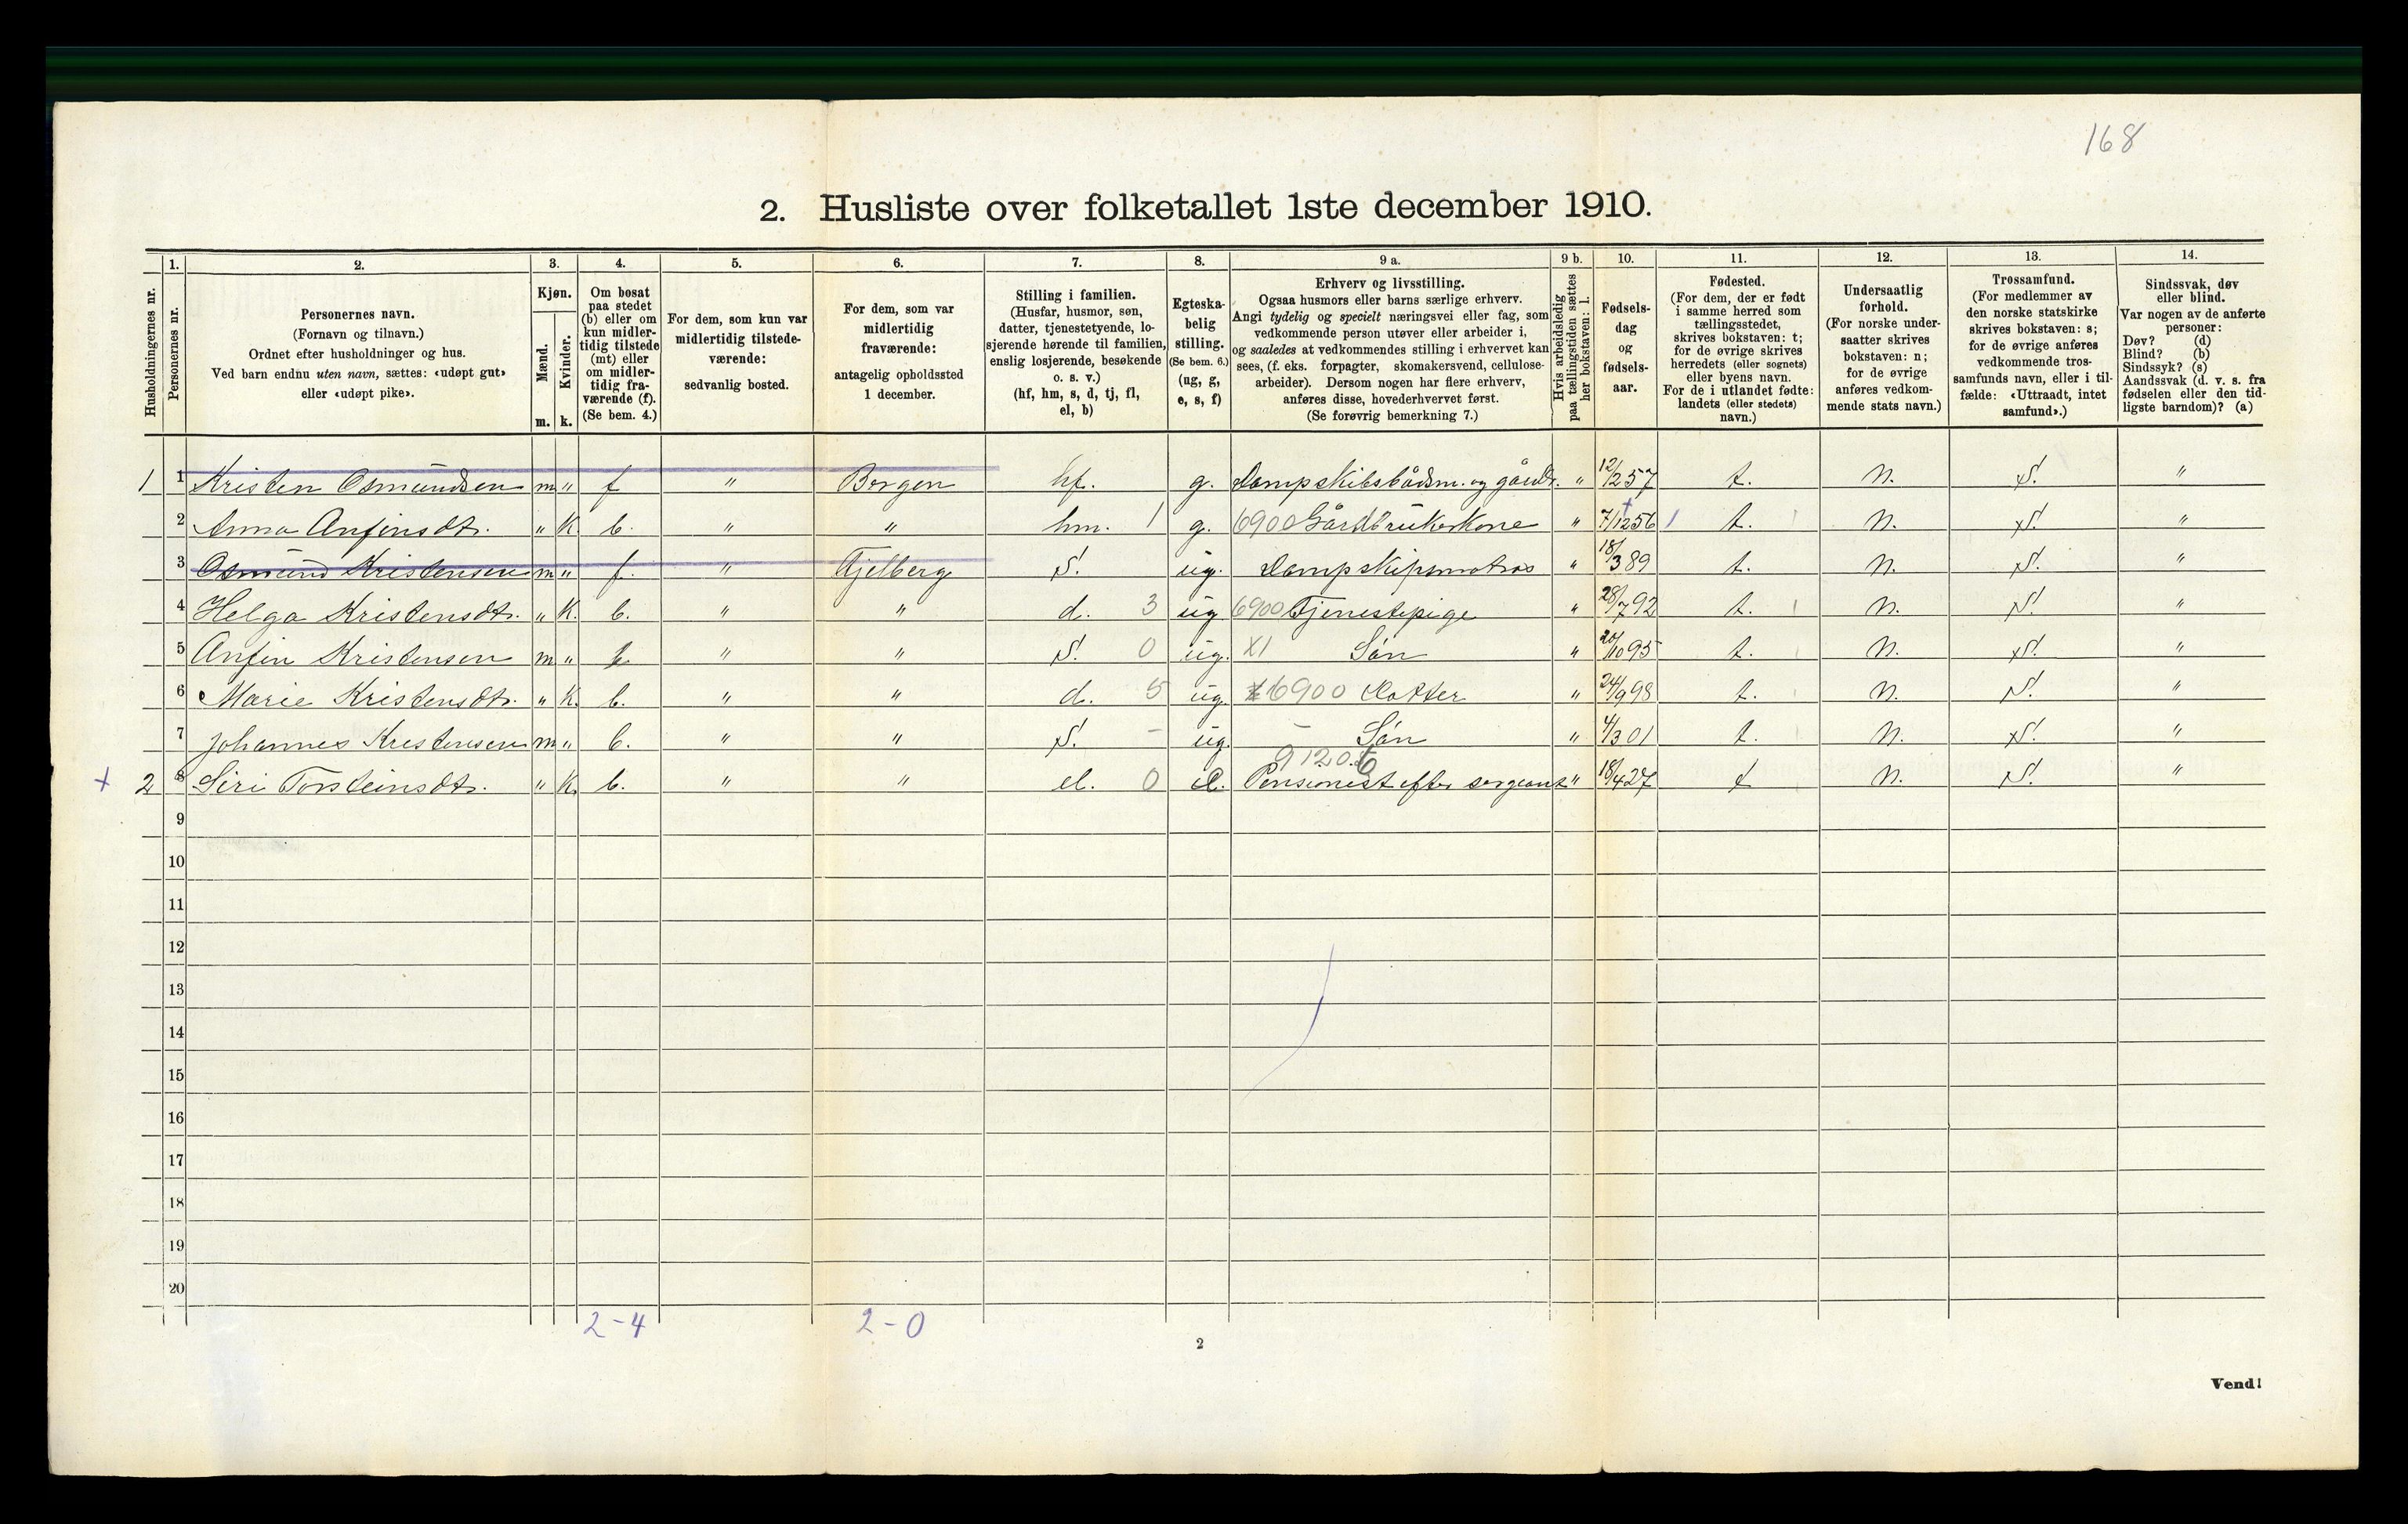 168
2. Husliste over folketallet 1ste december 1910.
Husholdningernes nr.
1.
Personernes nr.
2.
Personernes navn.
(Fornavn og tilnavn.)
Ordnet efter husholdninger og hus.
Ved barn endnu uten navn, sættes: «udøpt gut»
eller «udøpt pike».
3.
Kjøn.
Mænd.
Kvinder.
m. k.
4.
Om bosat
paa stedet
(b) eller om
kun midler-
tidig tilstede
(mt) eller
om midler-
tidig fra-
værende (f).
(Se bem. 4.)
5.
For dem, som kun var
midlertidig tilstede-
værende:
sedvanlig bosted.
6.
For dem, som var
midlertidig
fraværende:
antagelig opholdssted
1 december.
7.
Stilling i familien.
(Husfar, husmor, søn,
datter, tjenestetyende, lo-
sjerende hørende til familien,
enslig losjerende, besøkende
o. s. v.)
(hf, hm, s, d, tj, fl,
el, b)
8.
Egteska-
belig
stilling.
(Se bem. 6.)
(ug, g,
e, s, f)
9 a.
Erhverv og livsstilling.
Ogsaa husmors eller barns særlige erhverv.
Angi tydelig og specielt næringsvei eller fag, som
vedkommende person utøver eller arbeider i,
og saaledes at vedkommendes stilling i erhvervet kan
sees, (f. eks. forpagter, skomakersvend, cellulose-
arbeider). Dersom nogen har flere erhverv,
anføres disse, hovederhvervet først.
(Se forøvrig bemerkning 7.)
9 b.
Hvis arbeidsledig
paa tællingstiden sættes
her bokstaven: l.
10.
Fødsels-
dag
og
fødsels-
aar.
11.
Fødested.
(For dem, der er født
i samme herred som
tællingsstedet,
skrives bokstaven: t;
for de øvrige skrives
herredets (eller sognets)
eller byens navn.
For de i utlandet fødte:
landets (eller stedets)
navn.)
12.
Undersaatlig
forhold.
(For norske under-
saatter skrives
bokstaven: n;
for de øvrige
anføres vedkom-
mende stats navn.)
13.
Trossamfund.
(For medlemmer av
den norske statskirke
skrives bokstaven: s;
for de øvrige anføres
vedkommende tros-
samfunds navn, eller i til-
fælde: «Uttraadt, intet
samfund».)
14.
Sindssvak, døv
eller blind.
Var nogen av de anførte
personer:
Døv? (d)
Blind? (b)
Sindssyk? (s)
Aandssvak (d. v. s. fra
fødselen eller den tid-
ligste barndom)? (a)
1 1 Kristen Osmundsen m " f " Bergen hf. g. Dampskibsbådsm. og gårdb. " 12/2 57 t. n. S. "
2 Anna Anfinsdtr. " K. b. " " hm. 1 g. 6900 Gårdbrukerkone " 7/12 56 t. n. S. "
3 Osmund Kristensen m " f. " Fjelberg S. ug. Dampskipsmatros " 18/3 89 t. n. S. "
4 Helga Kristensdtr. " K. b. " " d. 3 ug 6900 Tjenestepige " 28/7 92 t. n. S. "
5 Anfin Kristensen m " b. " " S. 0 ug. X1 Søn " 20/10 95 t. n. S. "
6 Marie Kristensdtr. " K. b. " " d. 5 ug. 6900 Datter " 24/9 98 t. n. S. "
7 Johannes Kristensen m " b. " " S. - ug. - Søn " 4/3 01 t. n. S. "
9120.6
+ 2 8 Siri Torsteinsdtr. " K. b. " " el. 0 e. Pensionist efter sergeant " 18/4 27 t n. S. "
9
10
11
12
13
14
15
16
17
18
19
20
2-4 2-0
2
Vend!